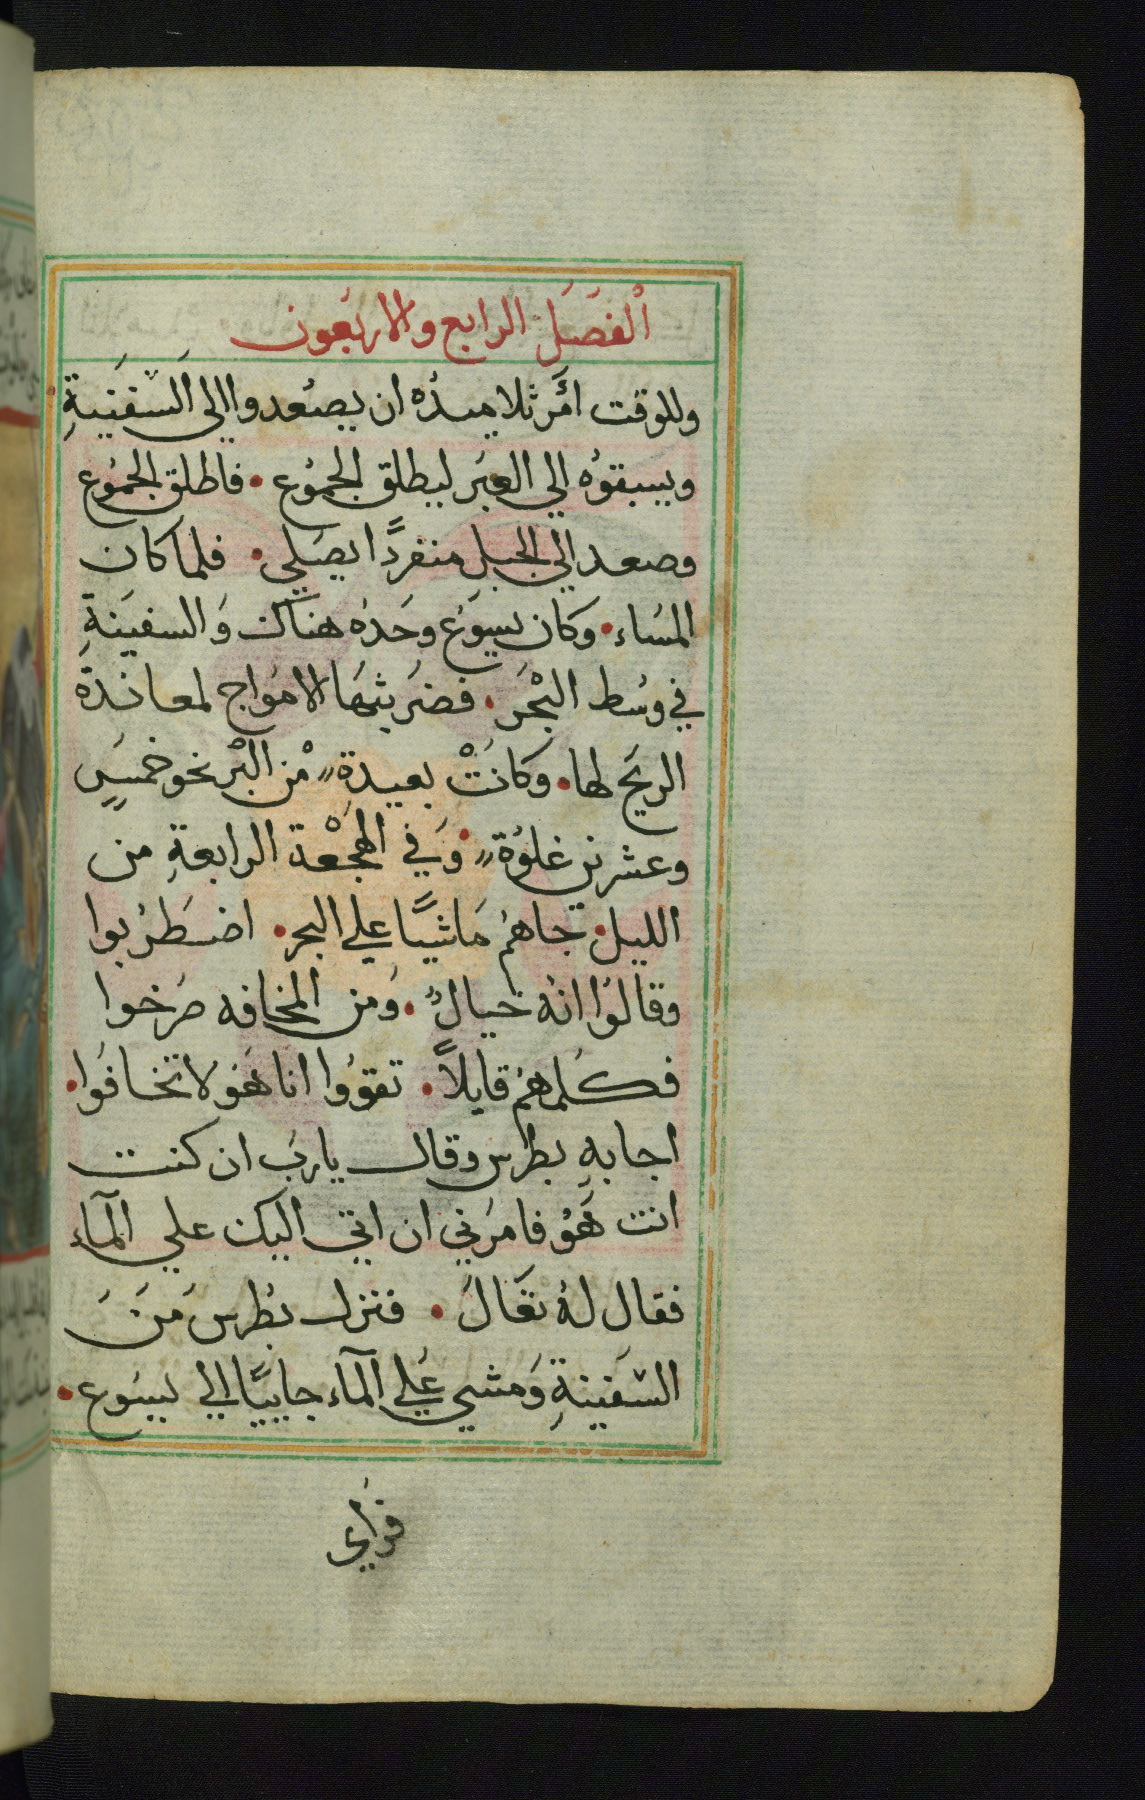 الفصل الرابع والاربعون
وللوقت امَر تلاميذُه ان يصعدوا الى السفينةِ
ويسبقوُه الي العبر ليطلق الجموُع • فاطلق الجموُع
وصعد الي الجبل منفردًا يصلي • فلما كان
المسَاء • وكان يسوَع وحَدهُ هناك وَالسفينةِ
في وسُط البْحَر • فضرَبتهَا الامَواج لمعاندة
الريَح لها • وكانَتْ بعيدةٍ مْن البْر نحو خمسٍ
وعشرين غلوُة • وَفي الهجَعْة الرابعةِ من
الليل • جاهمُ مَاشيًا علي البحر • اضطرُبوا
وقالوُا انهُ خيالٌ • وَمن المخافه صَرخوا
فكلمهمُ قايلاً • تقووُا انا هَوُ لا تخافَوا •
اجابهِ بطرس وقال ياربَ ان كنت
انت هَوُ فامرَني ان اتي اليك علي المآء
فقال لهُ تعَالَ • فنزل بطُرس مَنَ
السَفينةِ وَمشي عَلي المآء جاييًا الي يسَوع •
فراي